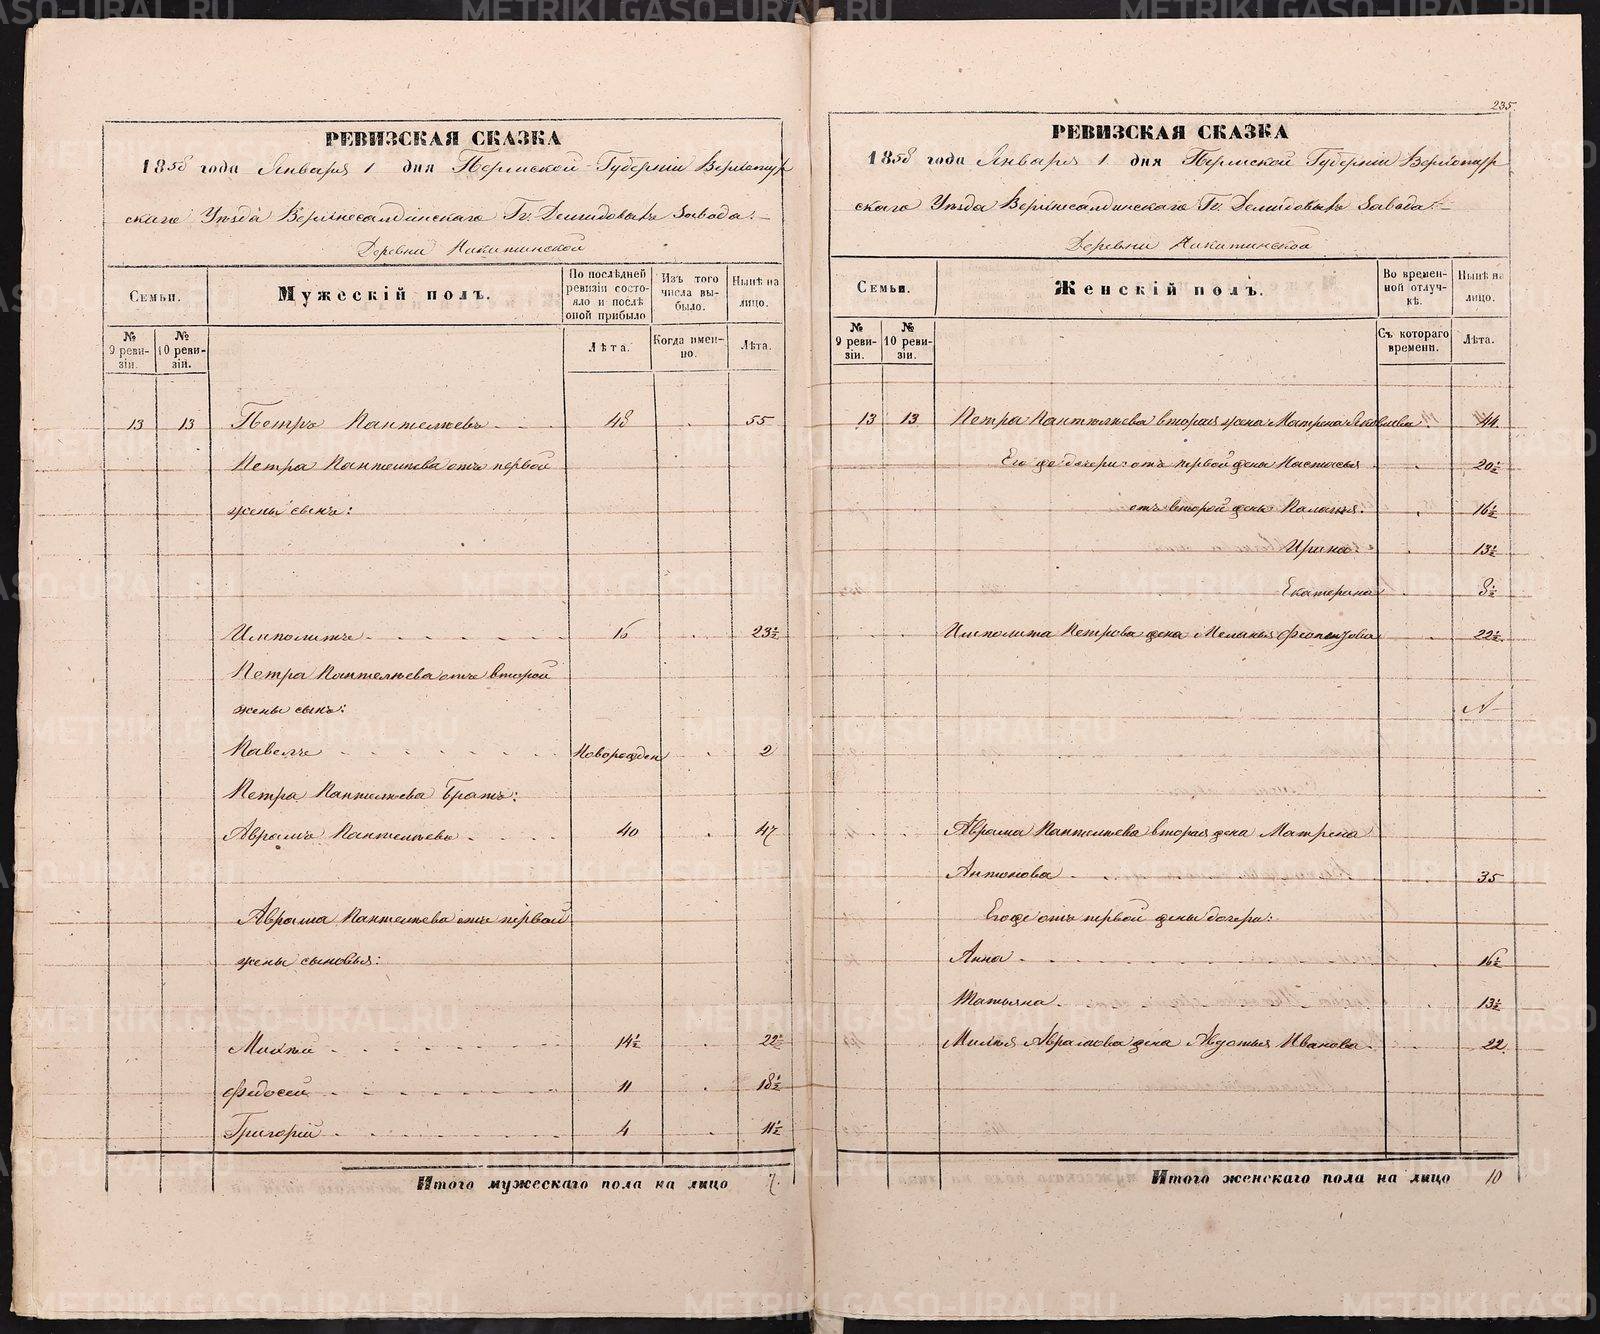 РЕВИЗСКАЯ СКАЗКА
1858 года Января 1 дня Пермской Губерніи Верхотур
скаго Уѣзда Верхнесалдинскаго Гг. Демидовыхъ Завода:
Деревни Никитинской
Семьи.
Мужескій полъ.
По послѣдней ревизіи состояло и послѣ оной прибыло
Изъ того числа выбыло.
Нынѣ на лицо.
№ 9 ревизіи.
№ 10 ревизіи.
Лѣта.
Когда именно.
Лѣта.
13 13 Петръ Пантелѣевъ 48 55
Петра Пантелѣева отъ первой
жены сынъ:
Ипполитъ 16 23½
Петра Пантелѣева отъ второй
жены сынъ:
Павелъ Новорожден 2
Петра Пантелѣева братъ:
Аврамъ Пантелѣевъ 40 47
Аврама Пантелѣева отъ первой
жены сыновья:
Михѣй 14½ 22½
Федосей 11 18½
Григорій 4 11½
Итого мужескаго пола на лицо 7.
235.
РЕВИЗСКАЯ СКАЗКА
1858 года Января 1 дня Пермской Губерніи Верхотур
скаго Уѣзда Верхнесалдинскаго Гг. Демидовыхъ Завода:
Деревни Никитинской
Семьи.
Женскій полъ.
Во временной отлучкѣ.
Нынѣ на лицо.
№ 9 ревизіи.
№ 10 ревизіи.
Съ котораго времени.
Лѣта.
13 13 Петра Пантелѣева вторая жена Матрена Яковлева 44
Его же дочери: отъ первой жены Настасья 20½
отъ второй жены Паланья. 16½
Ирина 13½
Екатерина 8½
Ипполита Петрова жена Меланья 22½
Аврама Пантелѣева вторая жена Матрена
Антонова 35
Его же отъ первой жены дочери:
Анна 16½
Татьяна 13½
Михѣя Аврамова жена Авдотья Иванова 22.
Итого женскаго пола на лицо 10
METRIKI.GASO-URAL.RU